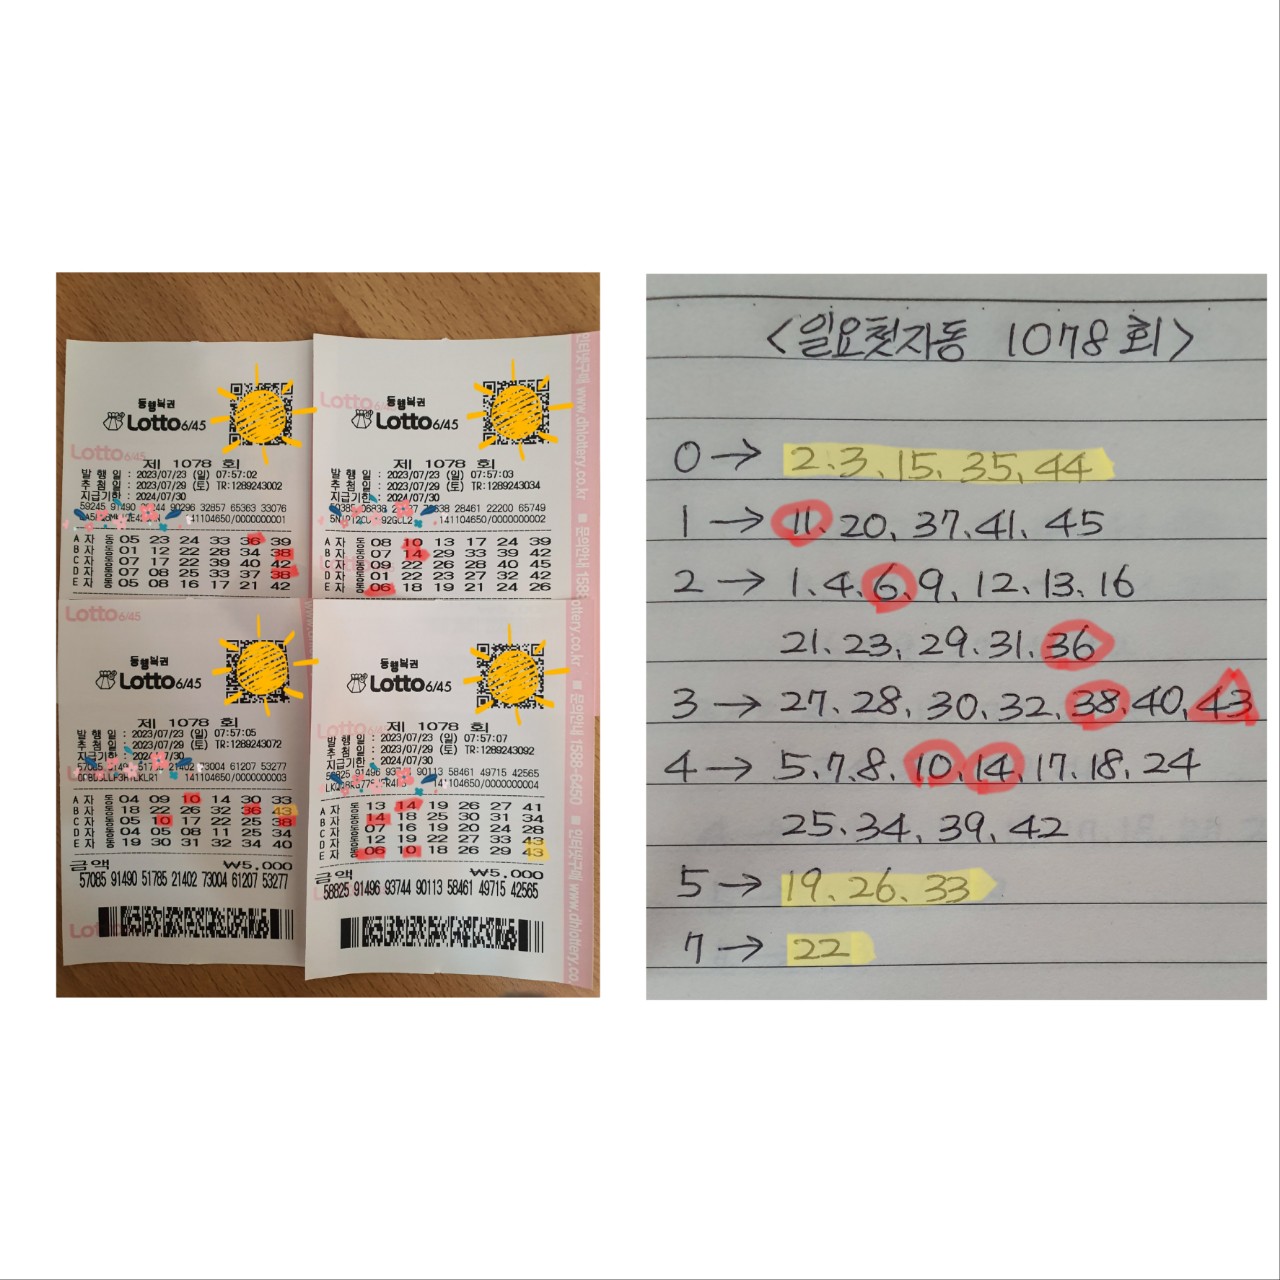 동행복권
Lotto 6/45
제 1078 회
발 행 일 : 2023/07/23 (일) 07:57:02
추 첨 일 : 2023/07/29 (토) TR:1289243002
지급기한 : 2024/07/30
90296 32857 65363 33076
141104650/0000000001
A 자 동 05 23 24 33 36 39
B 자 동 01 12 22 28 34 38
C 자 동 07 22 34 39 40 42
D 자 동 07 08 25 33 37 38
E 자 동 05 08 16 17 21 42
동행복권
Lotto 6/45
제 1078 회
발 행 일 : 2023/07/23 (일) 07:57:03
추 첨 일 : 2023/07/29 (토) TR:1289243034
지급기한 : 2024/07/30
28461 22200 65749
141104650/0000000002
A 자 동 08 10 13 17 24 39
B 자 동 07 14 29 33 39 42
C 자 동 09 22 26 28 40 45
D 자 동 01 22 23 27 32 42
E 자 동 06 18 19 21 24 26
Lotto 6/45
동행복권
Lotto 6/45
제 1078 회
발 행 일 : 2023/07/23 (일) 07:57:05
추 첨 일 : 2023/07/29 (토) TR:1289243072
지급기한 : 2024/07/30
57085 21402 73004 61207 53277
141104650/0000000003
A 자 동 04 09 10 14 30 33
B 자 동 18 22 26 32 36 43
C 자 동 05 10 17 22 25 38
D 자 동 04 05 08 11 25 34
E 자 동 19 30 31 32 34 40
금액 ₩5,000
57085 91490 51785 21402 73004 61207 53277
동행복권
Lotto 6/45
제 1078 회
발 행 일 : 2023/07/23 (일) 07:57:07
추 첨 일 : 2023/07/29 (토) TR:1289243092
지급기한 : 2024/07/30
58825 91496 90113 58461 49715 42565
141104650/0000000004
A 자 동 13 14 19 26 27 41
B 자 동 14 18 25 30 31 34
C 자 동 07 16 19 20 24 28
D 자 동 12 19 22 27 34 43
E 자 동 06 10 18 26 29 43
금액 ₩5,000
58825 91496 93744 90113 58461 49715 42565
인터넷구매 www.dhlottery.co.kr ■ 문의안내 1588-6450
<일요첫자동 1078회>
0 → 2, 3, 15, 35, 44
1 → 11, 20, 37, 41, 45
2 → 1, 4, 6, 9, 12, 13, 16
21, 23, 29, 31, 36
3 → 27, 28, 30, 32, 38, 40, 43
4 → 5, 7, 8, 10, 14, 17, 18, 24
25, 34, 39, 42
5 → 19, 26, 33
7 → 22